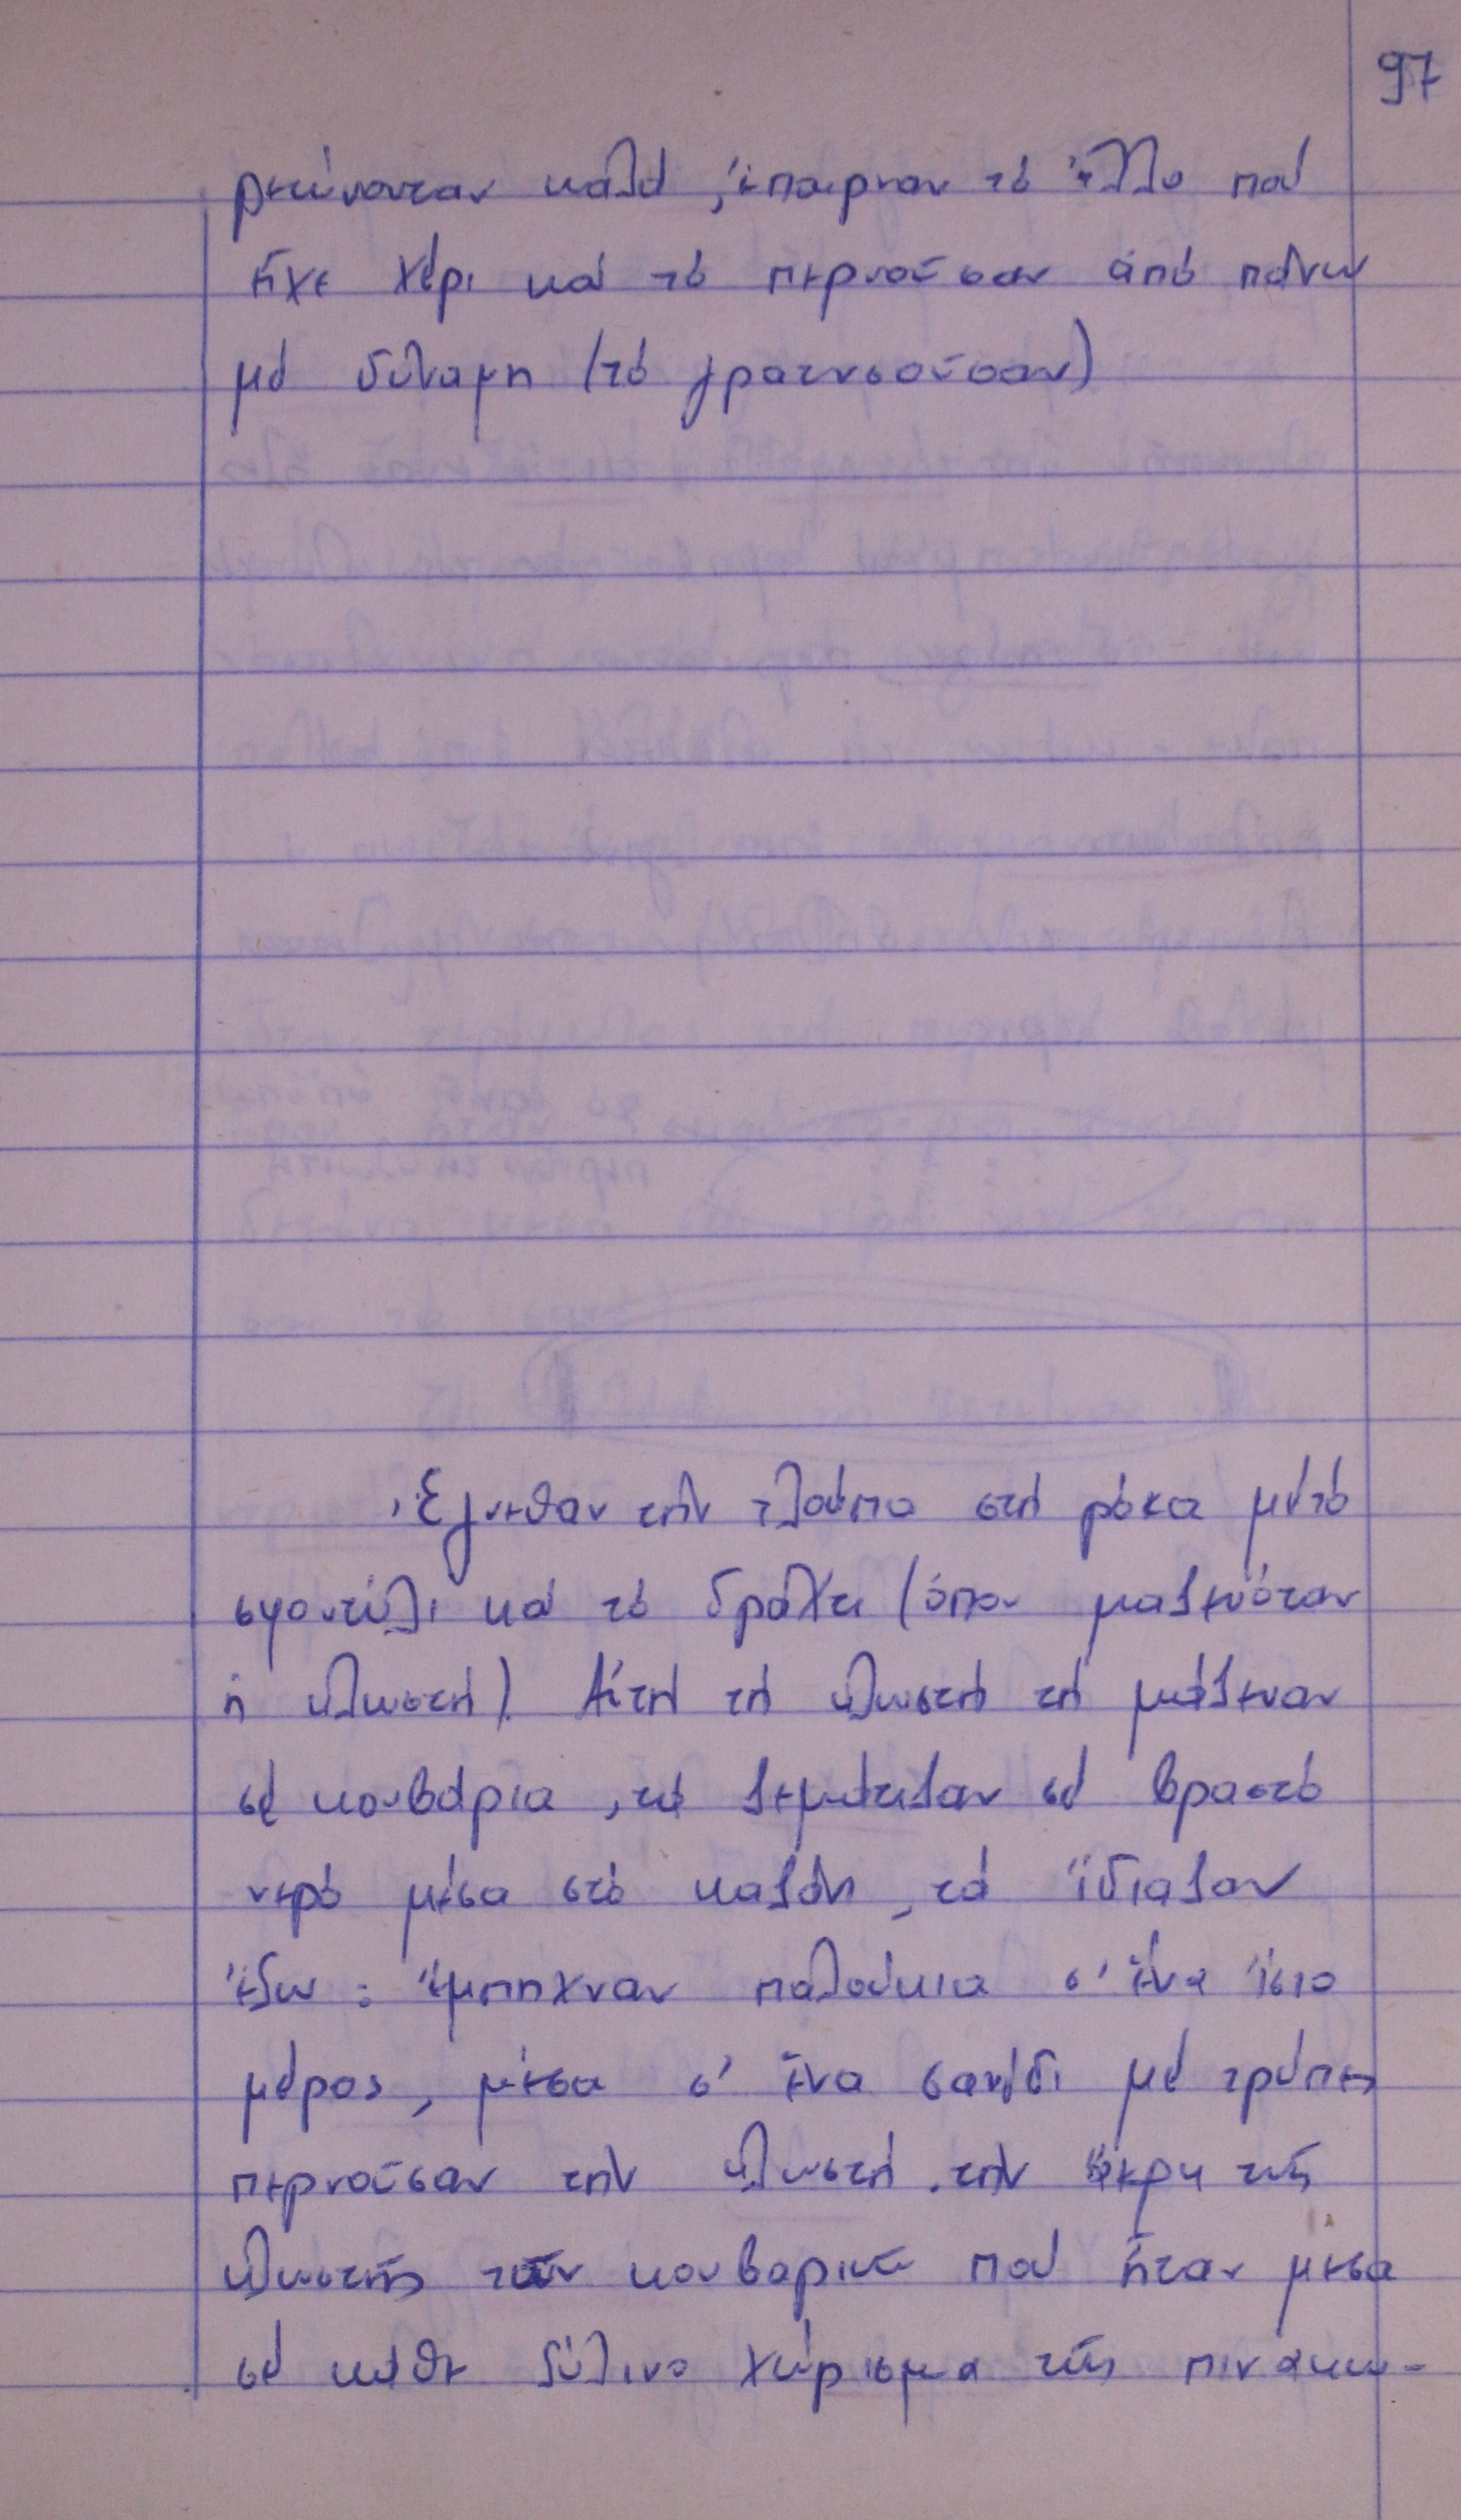 97
καλά, ἔπαιρναν τό ἄλλο πού
εἶχε χέρι καί τό περνοῦσαν ἀπό πάνω
μέ δύναμη (τό γρατνσοῦσαν)
Ἔγνεθαν τήν τλούπα στή ρόκα μέ τό
σφοντύλι καί τό δράχτι (ὅπου μαζευόταν
ἡ κλωστή). Αὐτή τή κλωστή τή μάζευαν
σέ κουβάρια, τά ζεμάτιζαν σέ βραστό
νερό μέσα στό καζάνι, τά ἵδιαζαν
ἔξω: ἔμπηχναν παλούκια σ' ἕνα ἴσιο
μέρος, μέσα σ' ἕνα σανίδι μέ τρύπες
περνοῦσαν τήν κλωστή. τήν ἄκρη τῆς
κλωστῆς τῶν κουβαριῶν πού ἦταν μέσα
σέ κάθε ξύλινο χώρισμα τῆς πινακω-